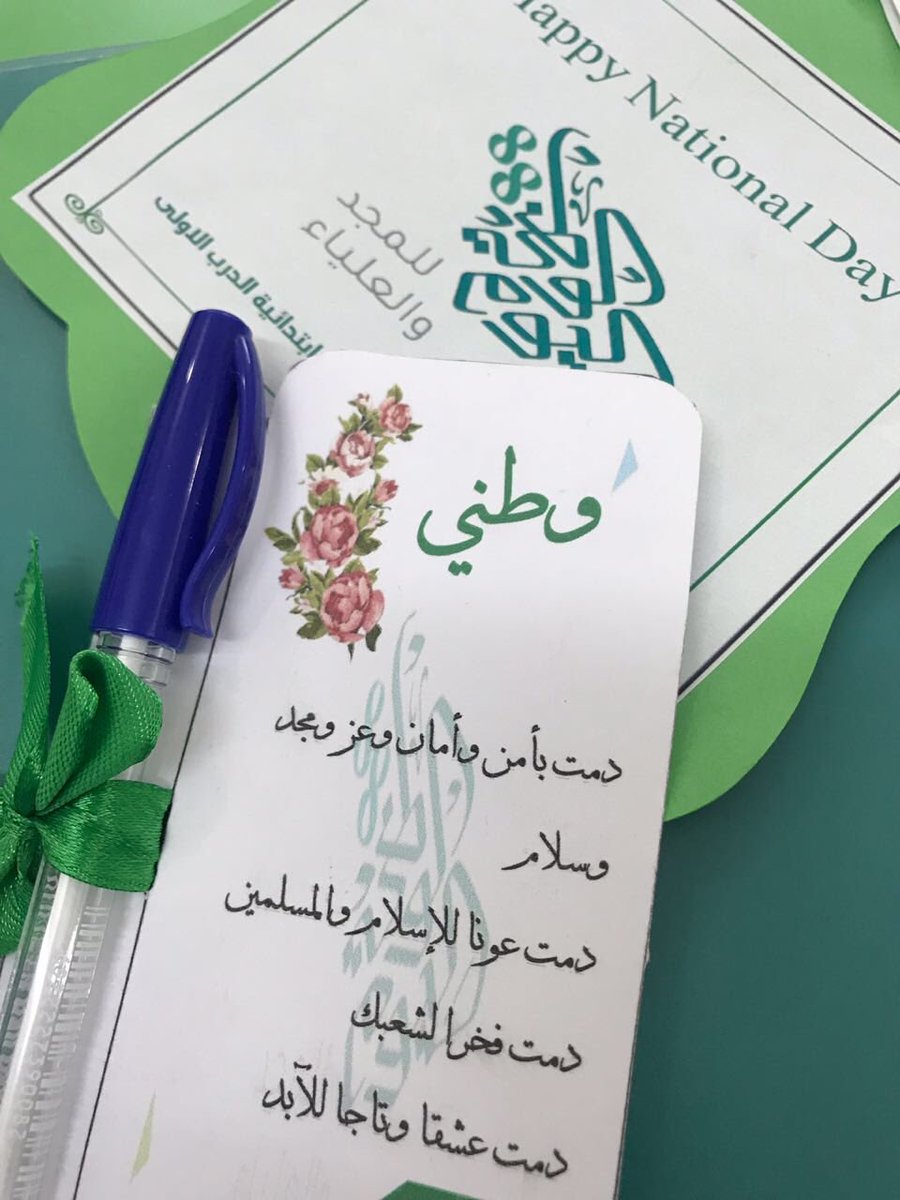 Happy National Day
88
للمجد
والعلياء
ابتدائية الدرب الاولى
وطني
دمت بأمن وأمان وعز ومجد
وسلام
دمت عونا للإسلام والمسلمين
دمت فخرا لشعبك
دمت عشقا وتاجا للآبد